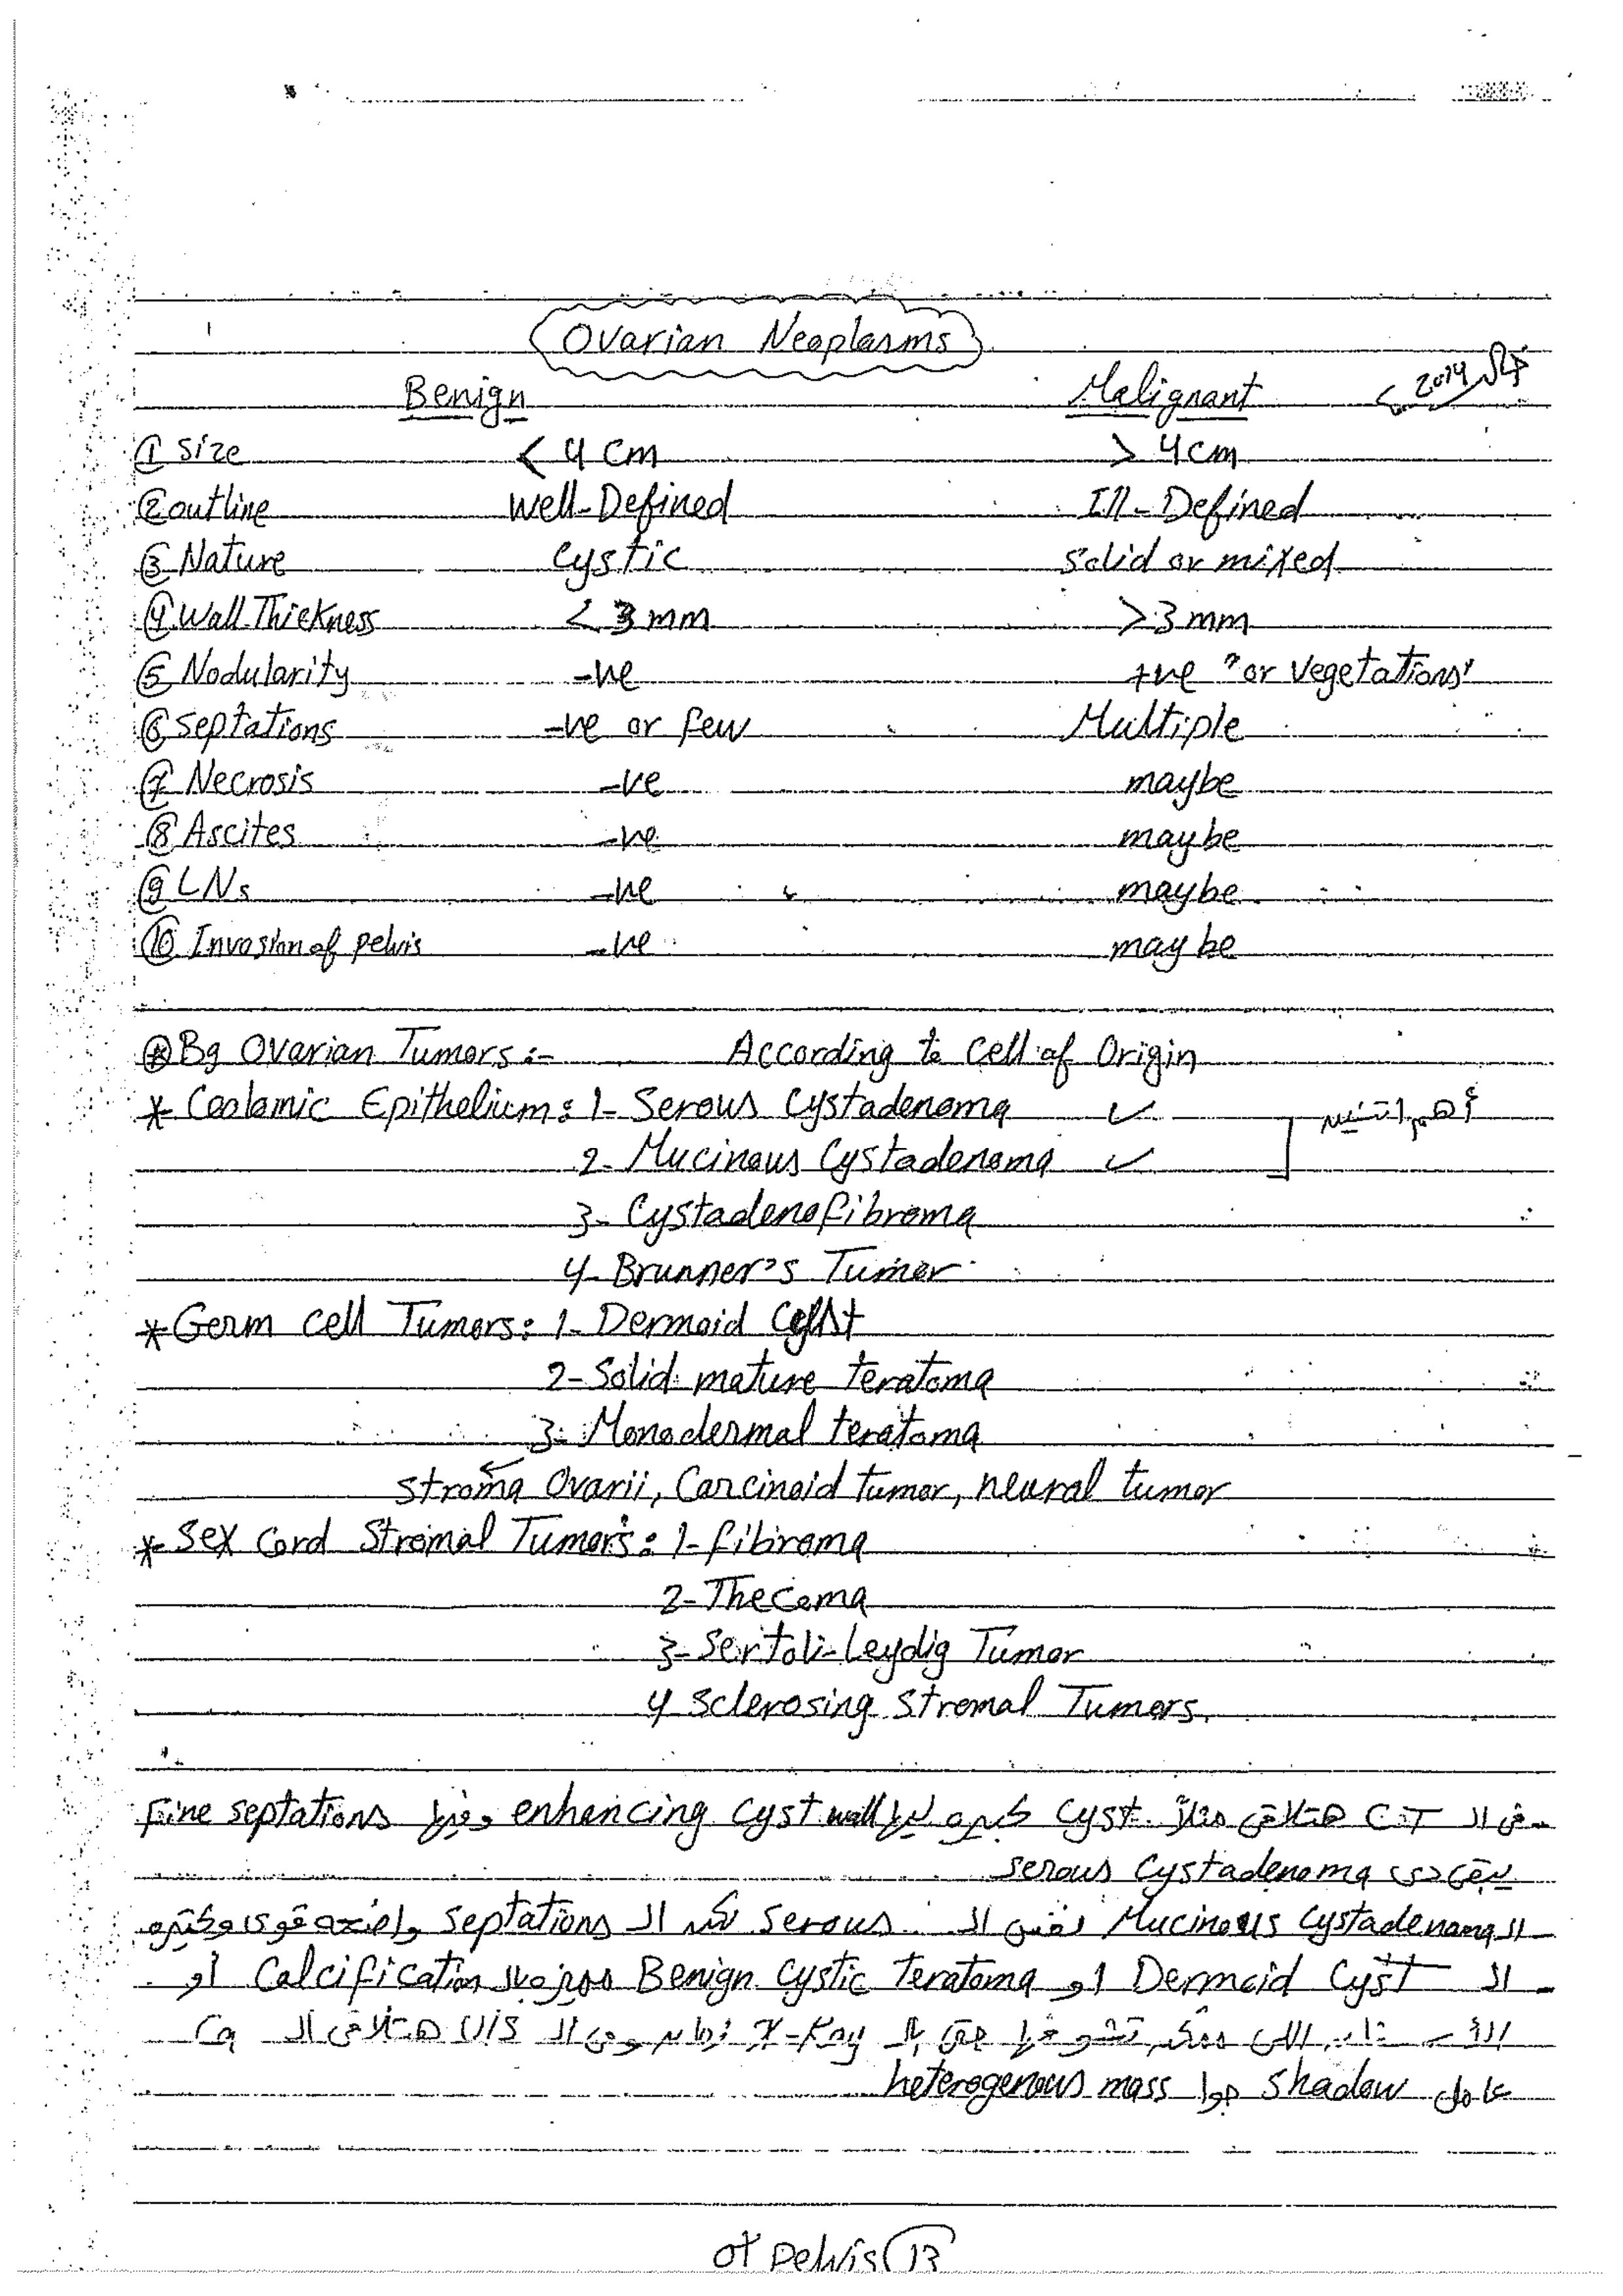 Ovarian Neoplasms
Benign Malignant 2014
① Size < 4 cm > 4 cm
② outline well-Defined Ill-Defined
③ Nature Cystic solid or mixed
④ Wall Thickness < 3 mm > 3 mm
⑤ Nodularity -ve +ve "or vegetations"
⑥ septations -ve or few Multiple
⑦ Necrosis -ve maybe
⑧ Ascites -ve maybe
⑨ LNs -ve maybe
⑩ Invasion of pelvis -ve may be
⊛ Bg Ovarian Tumors :- According to Cell of Origin
* Coolamic Epithelium: 1- Serous Cystadenoma ✓ أهم اتنين
2- Mucinous Cystadenoma ✓
3- Cystadenofibroma
4- Brunner's Tumor
* Germ cell Tumors: 1- Dermoid Cyst
2- Solid mature teratoma
3- Monodermal teratoma
stroma Ovarii, Carcinoid tumor, neural tumor
* Sex Cord Stromal Tumors: 1- fibroma
2- Thecoma
3- Sertoli-Leydig Tumor
4 Sclerosing Stromal Tumors.
- في ال CT هتلاقي مثلاً cyst كبيره ليها enhancing cyst wall وفيها Fine septations
يبقى دي serous cystadenoma
- ال Mucinous Cystadenoma نفس ال serous لكن ال septations واضحه قوي وكتيره
- ال Dermoid Cyst او Benign Cystic Teratoma مميزه بال Calcification أو
الأسنان اللي ممكن تشوفها حتى بال X-Ray وفي ال U/S هتلاقي ال Ca
عامل shadow جوا heterogenous mass
of pelvis 13